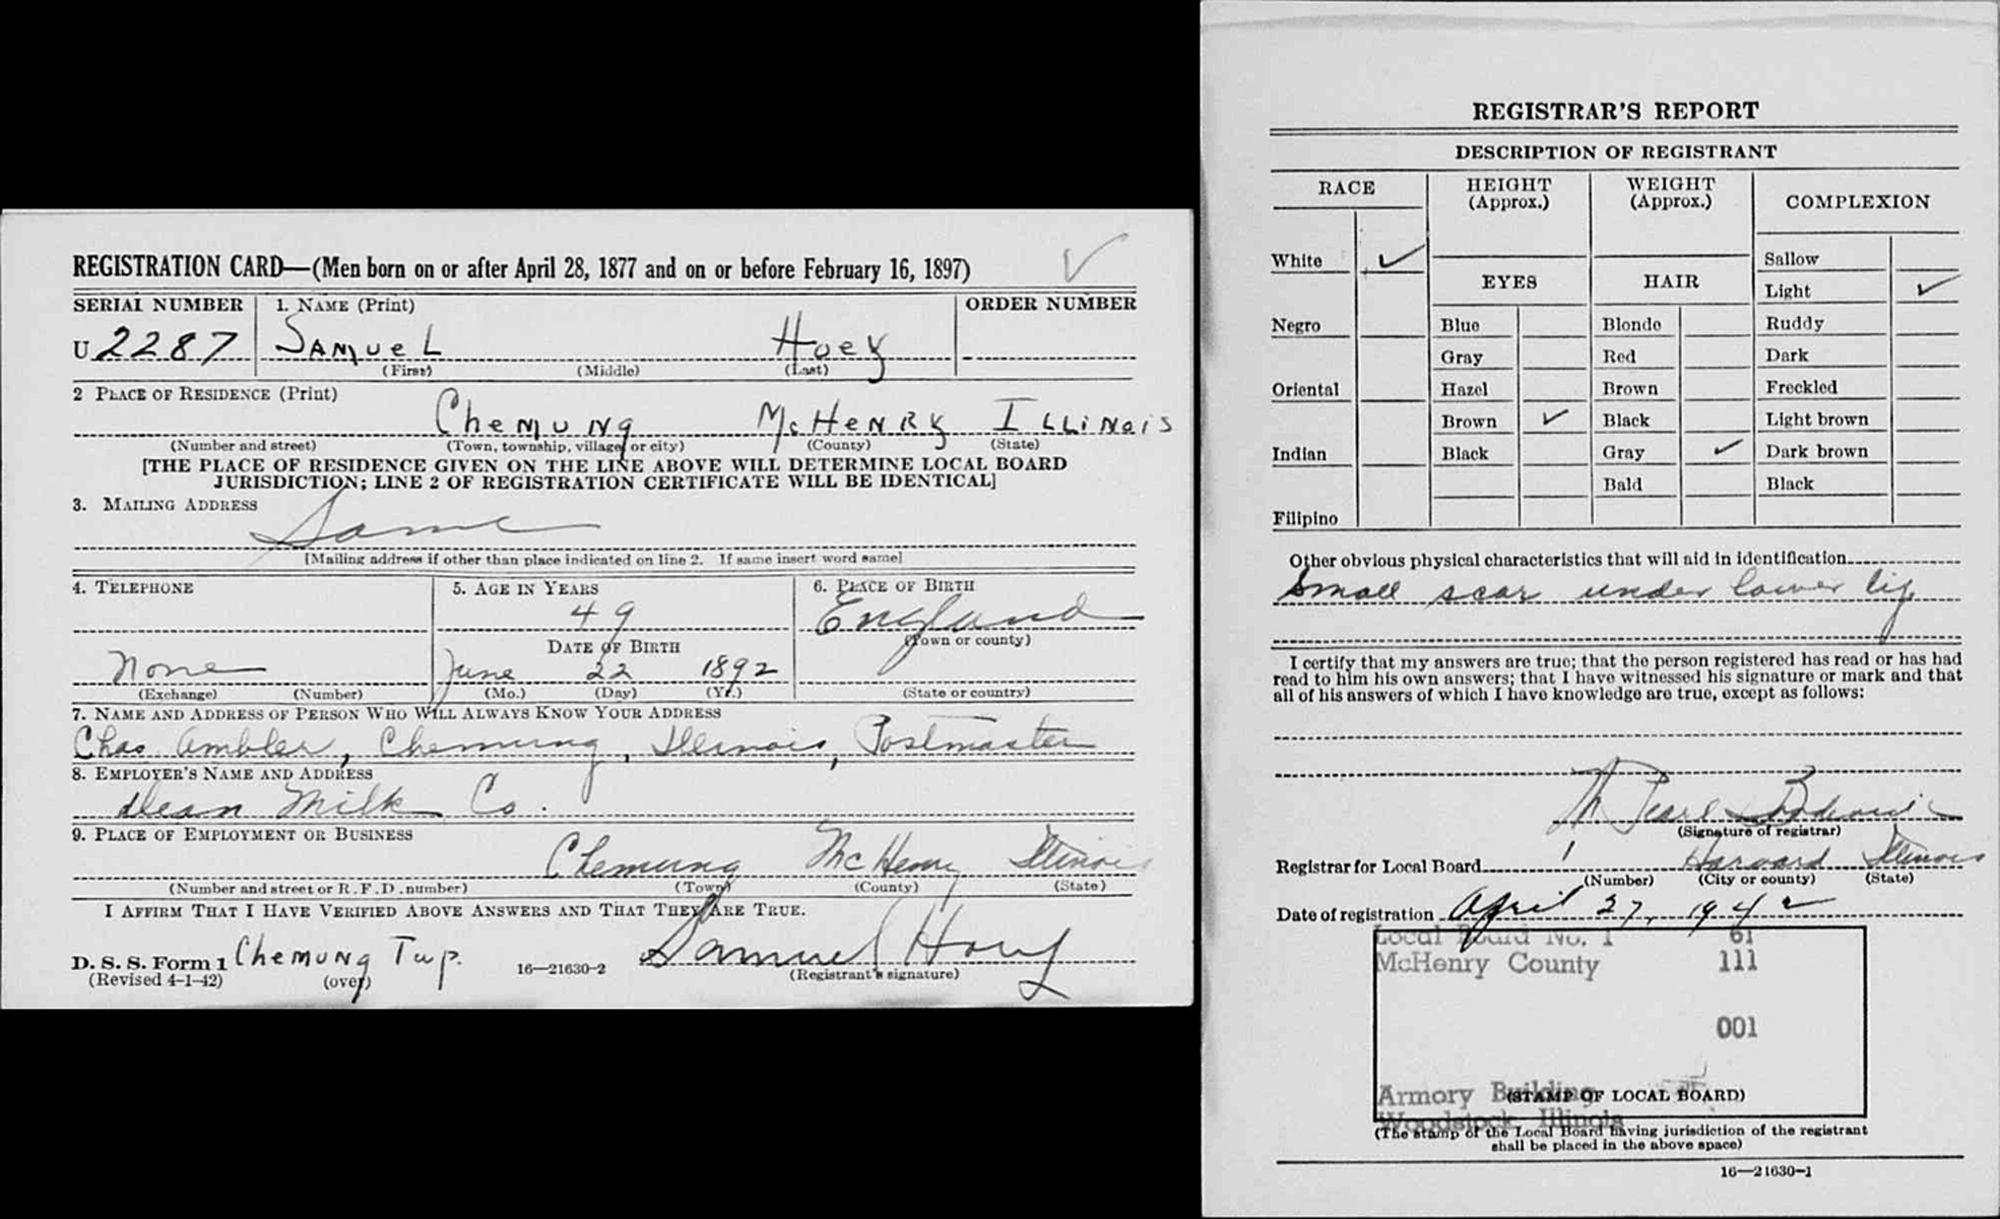 REGISTRATION CARD—(Men born on or after April 28, 1877 and on or before February 16, 1897)
SERIAL NUMBER 1. NAME (Print) ORDER NUMBER
U 2287 SAMUEL HOEY
(First) (Middle) (Last)
2 PLACE OF RESIDENCE (Print)
CHEMUNG McHENRY ILLINOIS
(Number and street) (Town, township, village, or city) (County) (State)
[THE PLACE OF RESIDENCE GIVEN ON THE LINE ABOVE WILL DETERMINE LOCAL BOARD
JURISDICTION; LINE 2 OF REGISTRATION CERTIFICATE WILL BE IDENTICAL]
3. MAILING ADDRESS
Same
[Mailing address if other than place indicated on line 2. If same insert word same]
4. TELEPHONE 5. AGE IN YEARS 6. PLACE OF BIRTH
49 England
DATE OF BIRTH (Town or county)
None June 22 1892
(Exchange) (Number) (Mo.) (Day) (Yr.) (State or country)
7. NAME AND ADDRESS OF PERSON WHO WILL ALWAYS KNOW YOUR ADDRESS
Chas Ambler, Chemung, Illinois, Postmaster
8. EMPLOYER'S NAME AND ADDRESS
Dean Milk Co.
9. PLACE OF EMPLOYMENT OR BUSINESS
Chemung McHenry Illinois
(Number and street or R. F. D. number) (Town) (County) (State)
I AFFIRM THAT I HAVE VERIFIED ABOVE ANSWERS AND THAT THEY ARE TRUE.
D. S. S. Form 1 Chemung Twp. 16—21630-2 Samuel Hoey
(Revised 4-1-42) (over) (Registrant's signature)
REGISTRAR'S REPORT
DESCRIPTION OF REGISTRANT
RACE HEIGHT (Approx.) WEIGHT (Approx.) COMPLEXION
White ✓ Sallow
EYES HAIR Light ✓
Negro Blue Blonde Ruddy
Gray Red Dark
Oriental Hazel Brown Freckled
Brown ✓ Black Light brown
Indian Black Gray ✓ Dark brown
Bald Black
Filipino
Other obvious physical characteristics that will aid in identification
Small scar under lower lip
I certify that my answers are true; that the person registered has read or has had
read to him his own answers; that I have witnessed his signature or mark and that
all of his answers of which I have knowledge are true, except as follows:
Pearl
(Signature of registrar)
Registrar for Local Board 1 Harvard Illinois
(Number) (City or county) (State)
Date of registration April 27, 1942
Local Board No. 1 61
McHenry County 111
001
Armory Building
(STAMP OF LOCAL BOARD)
Woodstock, Illinois
(The stamp of the Local Board having jurisdiction of the registrant
shall be placed in the above space)
16—21630-1